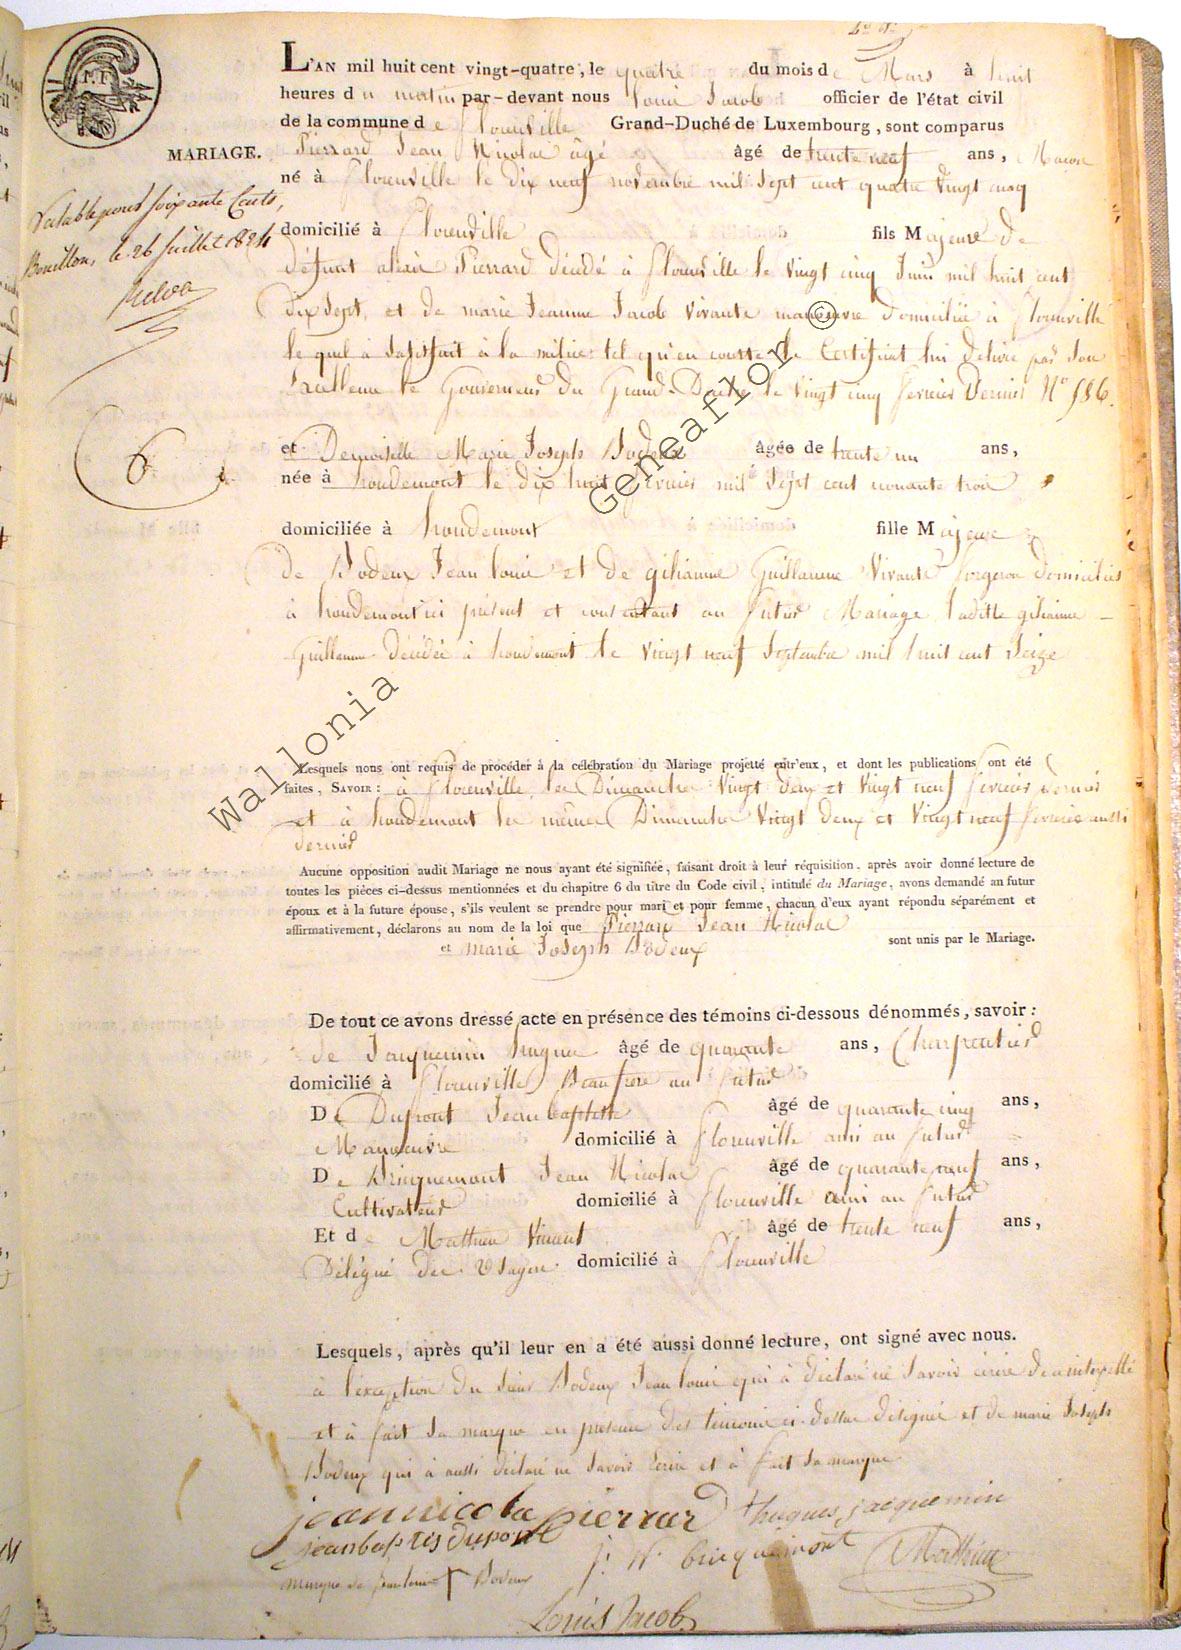 L'AN mil huit cent vingt-quatre, le quatre du mois de Mars à huit
heures du matin par-devant nous Louis Jacob officier de l'état civil
de la commune de Florenville Grand-Duché de Luxembourg, sont comparus
MARIAGE.
Pierrard Jean Nicolas âgé âgé de trente neuf ans, Macon
né à Florenville le dix neuf novembre mil sept cent quatre vingt cinq
Valable pour soixante Cents,
Bouillon, le 26 Juillet 1824
domicilié à Florenville fils Majeure de
défunt Pierrard décédé à florenville le vingt cinq Juin mil huit cent
dix sept, et de marie Jeanne Jacob vivante manoeuvre domiciliée à florenville
lequel à satisfait à la milice tel qu'en conste le Certificat lui délivré par son
Excellence le Gouverneur du Grand-Duché le vingt cinq fevrier dernier N° 586.
6
et Demoiselle Marie Joseph Bodeux âgée de trente un ans,
née à houdemont le dix huit fevrier mil sept cent nonante trois
domiciliée à houdemont fille Majeure
de Bodeux Jean louis et de gilianne Guillaume vivante forgeron domiciliés
à houdemont ici présent et consentant au futur Mariage ladite gilianne
Guillaume décédée à houdemont le vingt neuf septembre mil huit cent seize
Lesquels nous ont requis de procéder à la célébration du Mariage projetté entr'eux, et dont les publications ont été
faites, SAVOIR: à Florenville les Dimanches vingt deux et vingt neuf fevrier dernier
et à houdemont les mêmes Dimanches vingt deux et vingt neuf fevrier aussi
dernier
Aucune opposition audit Mariage ne nous ayant été signifiée, faisant droit à leur réquisition, après avoir donné lecture de
toutes les pièces ci-dessus mentionnées et du chapitre 6 du titre du Code civil, intitulé du Mariage, avons demandé au futur
époux et à la future épouse, s'ils veulent se prendre pour mari et pour femme, chacun d'eux ayant répondu séparément et
affirmativement, déclarons au nom de la loi que Pierrard Jean Nicolas
et marie Joseph Bodeux sont unis par le Mariage.
De tout ce avons dressé acte en présence des témoins ci-dessous dénommés, savoir:
de Jacquemin hugues âgé de quarante ans, Charpentier
domicilié à florenville Beaufrere au futur
De Dupont Jean baptiste âgé de quarante cinq ans,
Manoeuvre domicilié à florenville ami au futur
De Bricquemont Jean Nicolas âgé de quarante neuf ans,
Cultivateur domicilié à florenville ami au futur
Et de Mathieu Vincent âgé de trente neuf ans,
Délégué des Usages domicilié à florenville
Lesquels, après qu'il leur en a été aussi donné lecture, ont signé avec nous.
à l'exception du sieur Bodeux Jean louis qui à déclaré ne savoir écrire de ce interpellé
et à fait sa marque en presence des temoins ci dessus designés et de marie Joseph
Bodeux qui à aussi déclaré ne savoir écrire et à fait sa marque
jeannicola pierrard hugues jacquemin
jeanbaptis dupont j. N. bricquemont Mathieu
marque de jean louis Bodeux
Louis Jacob
Wallonia Geneaflor ©